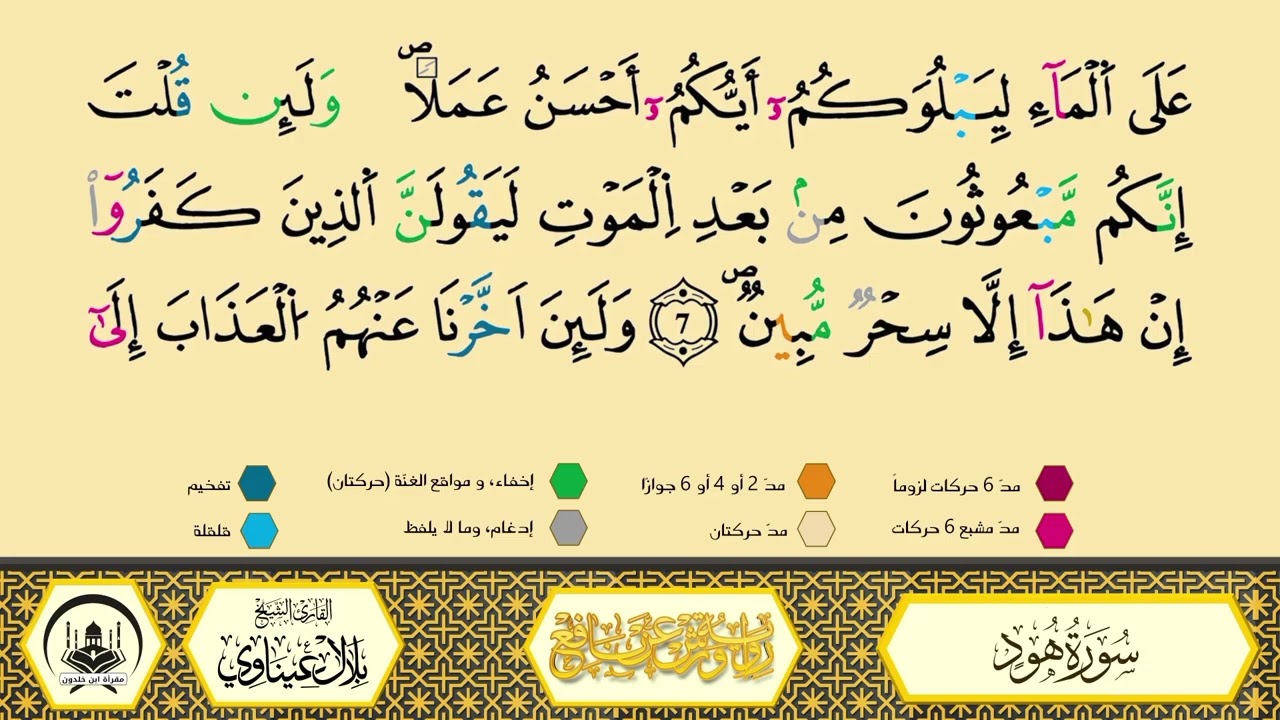 عَلَى اَ۬لْمَآءِ لِيَبْلُوَكُمُۥٓ أَيُّكُمُۥٓ أَحْسَنُ عَمَلاٗۖ وَلَئِن قُلْتَ
إِنَّكُم مَّبْعُوثُونَ مِنۢ بَعْدِ اِ۬لْمَوْتِ لَيَقُولَنَّ اَ۬لذِينَ كَفَرُوٓاْ
إِنْ هَٰذَآ إِلَّا سِحْرٞ مُّبِينٞۖ 7 وَلَئِنَ اَخَّرْنَا عَنْهُمُ اُ۬لْعَذَابَ إِلَىٰٓ
مدّ 6 حركات لزوماً
مدّ 2 أو 4 أو 6 جوازًا
إخفاء، و مواقع الغنّة (حركتان)
تفخيم
مدّ مشبع 6 حركات
مدّ حركتان
إدغام، وما لا يلفظ
قلقلة
سُورَةُ هُودٍ
رواية ورش عن نافع
القارئ الشيخ
بلال عيناوي
مقرأة ابن خلدون